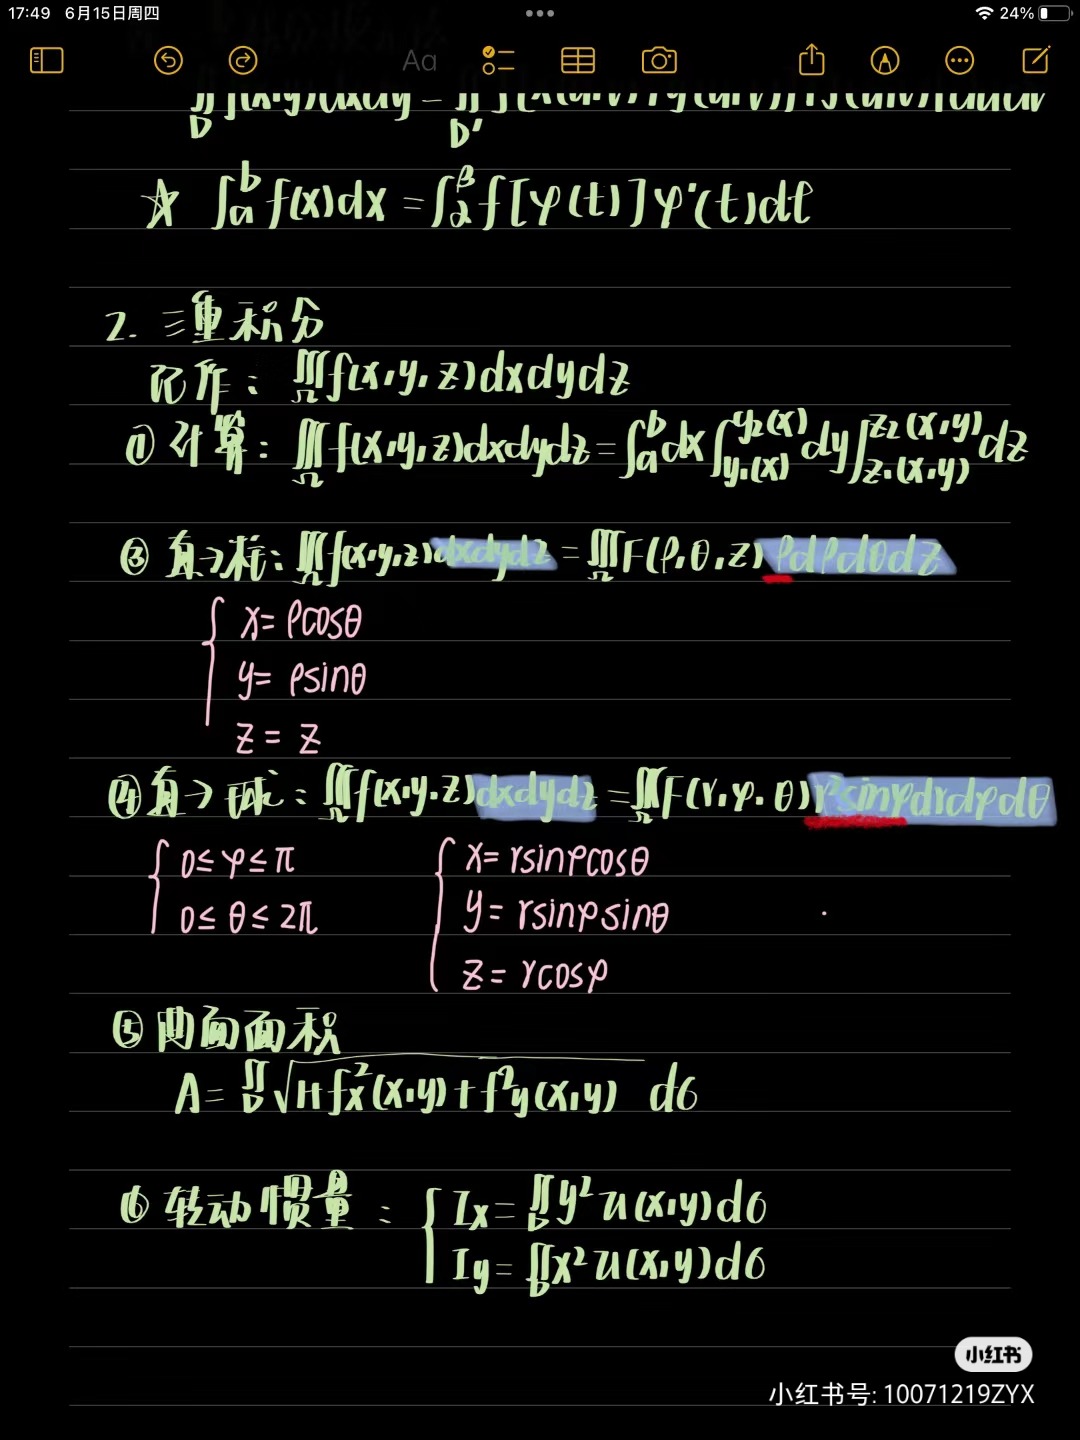 17:49 6月15日周四
24%
Aa
∬D f(x,y)dxdy = ∬D' f[x(u,v),y(u,v)]|J(u,v)|dudv
☆ ∫ₐᵇ f(x)dx = ∫_α^β f[φ(t)]φ'(t)dt
2. 三重积分
记作: ∭Ω f(x,y,z)dxdydz
① 计算: ∭Ω f(x,y,z)dxdydz = ∫ₐᵇ dx ∫_{y₁(x)}^{y₂(x)} dy ∫_{z₁(x,y)}^{z₂(x,y)} dz
③ 直→柱: ∭Ω f(x,y,z)dxdydz = ∭Ω F(ρ,θ,z) ρdρdθdz
x = ρcosθ
y = ρsinθ
z = z
④ 直→球: ∭Ω f(x,y,z)dxdydz = ∭Ω F(r,φ,θ) r²sinφdrdφdθ
0≤φ≤π x = rsinφcosθ
0≤θ≤2π y = rsinφsinθ
z = rcosφ
⑤ 曲面面积
A = ∬D √(1+fx²(x,y)+f²y(x,y)) dσ
⑥ 转动惯量: Ix = ∬D y² u(x,y)dσ
Iy = ∬D x² u(x,y)dσ
小红书
小红书号: 10071219ZYX